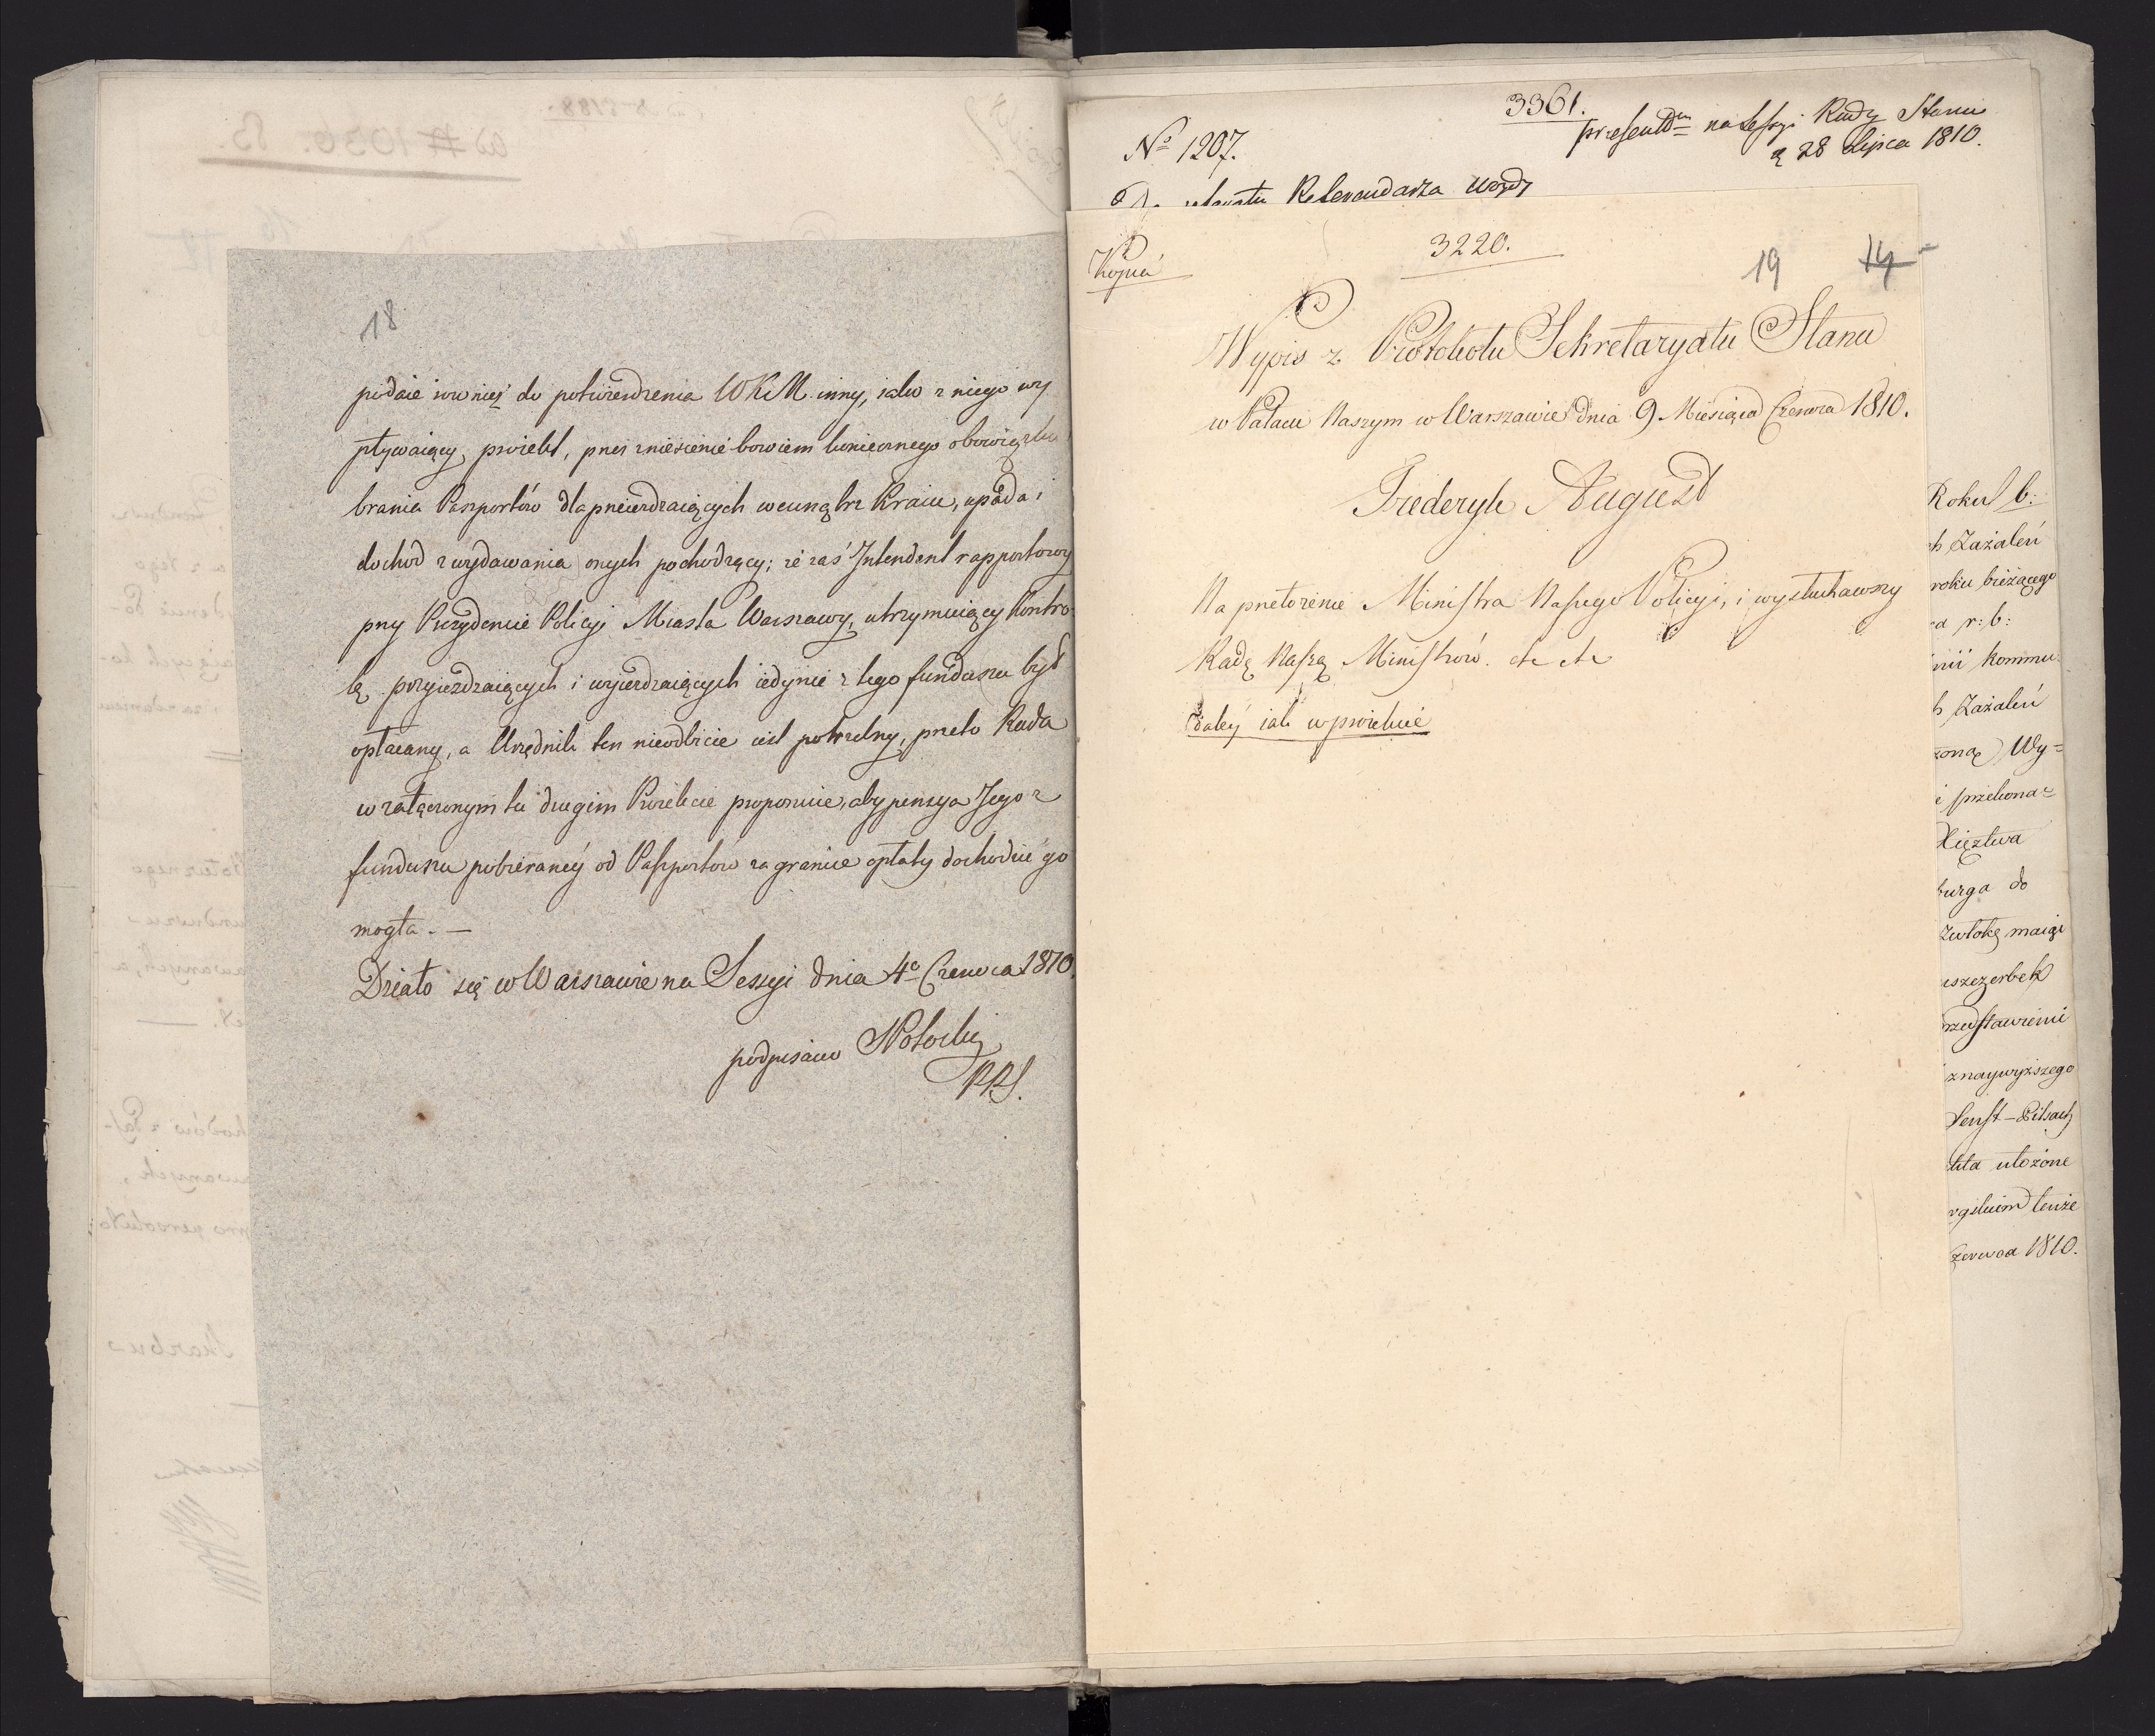 18
podaie rownież do potwierdzenia WKM. inny, iako z niego wy
pływaiący, proiekt, przez zniesienie bowiem koniecznego obowiązku
brania Paszportów dla przeiezdzaiących wewnątrz Kraiu, upada i
dochod z wydawania onych pochodzący; że zaś Intendent rapportowy
przy Prezydencie Policyi Miasta Warszawy, utrzymuiący Kontro
lę przyiezdzaiących i wyiezdzaiących iedynie z tego funduszu był
opłacany, a Urzędnik ten nieodbicie iest potrzebny, przeto Rada
w załączonym tu drugim Proiekcie proponuie, aby pensya Jego z
funduszu pobieraney od Paszportów za granice opłaty dochodzić go
mogła. —
Działo się w Warszawie na Sessyi dnia 4º Czerwca 1810.
podpisano Potocki
PRS.
3361.
presentm na Sessyi Rady Stanu
d 28 Lipca 1810.
Nº 1207.
Referendarza
Kopia
3220.
19 14
Wypis z Protokołu Sekretaryatu Stanu
w Pałacu Naszym w Warszawie dnia 9. Miesiąca Czerwca 1810.
Frederyk August
Na przełożenie Ministra Naszego Policyi, i wysłuchawszy
Radę Naszą Ministrów. etc etc
daléy iak w proiekcie
Roku b:
h Zażaleń
roku bieżącego
a r: b:
nii kommu
h Zażaleń
zoną Wy=
i przekona=
Xięztwa
burga do
zwłokę maiąi
uszczerbek
rzedstawieniu
znaywyższego
Senft-Pilsach
ułożone
tenże
zerwca 1810.